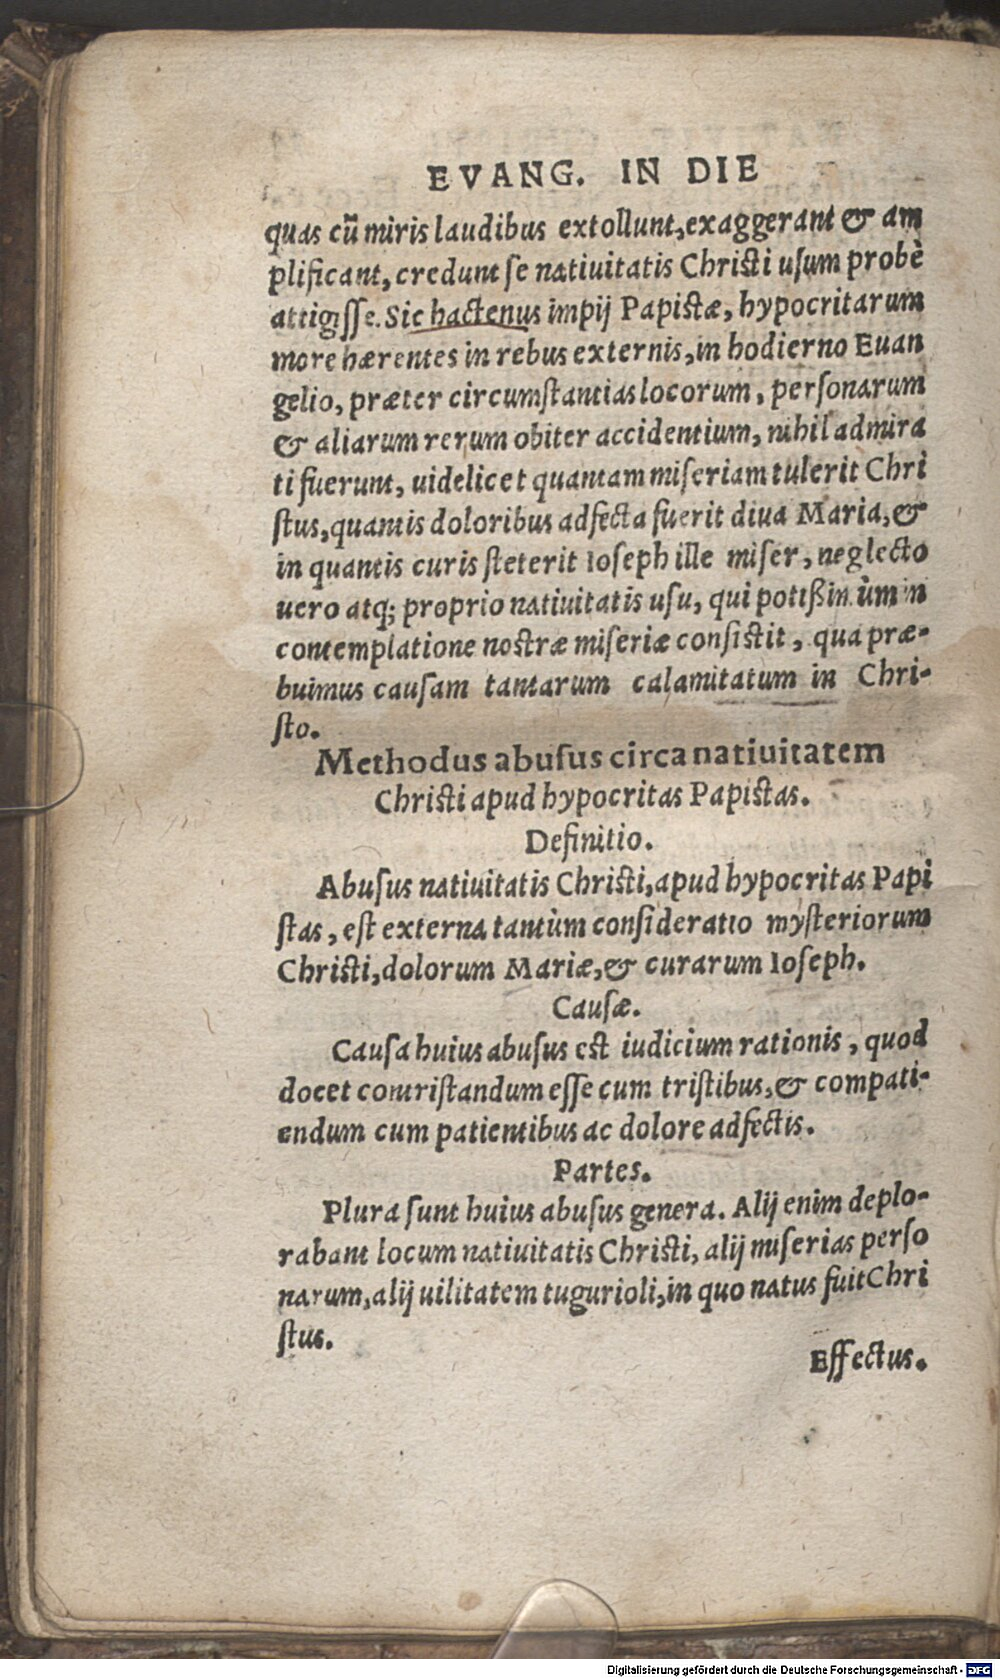 EVANG. IN DIE
quas cũ miris laudibus extollunt, exaggerant & am
plificant, credunt se natiuitatis Christi usum probè
attigisse. Sic hactenus impij Papistæ, hypocritarum
more hærentes in rebus externis, in hodierno Euan
gelio, præter circumstantias locorum, personarum
& aliarum rerum obiter accidentium, nihil admira
ti fuerunt, uidelicet quantam miseriam tulerit Chri
stus, quantis doloribus adfecta fuerit diua Maria, &
in quantis curis steterit Ioseph ille miser, neglecto
uero atq; proprio natiuitatis usu, qui potißimùm in
contemplatione nostræ miseriæ consistit, qua præ-
buimus causam tantarum calamitatum in Chri-
sto.
Methodus abusus circa natiuitatem
Christi apud hypocritas Papistas.
Definitio.
Abusus natiuitatis Christi, apud hypocritas Papi
stas, est externa tantùm consideratio mysteriorum
Christi, dolorum Mariæ, & curarum Ioseph.
Causæ.
Causa huius abusus est iudicium rationis, quod
docet contristandum esse cum tristibus, & compati-
endum cum patientibus ac dolore adfectis.
Partes.
Plura sunt huius abusus genera. Alij enim deplo-
rabant locum natiuitatis Christi, alij miserias perso
narum, alij uilitatem tugurioli, in quo natus fuit Chri
stus.
Effectus.
Digitalisierung gefördert durch die Deutsche Forschungsgemeinschaft - DFG